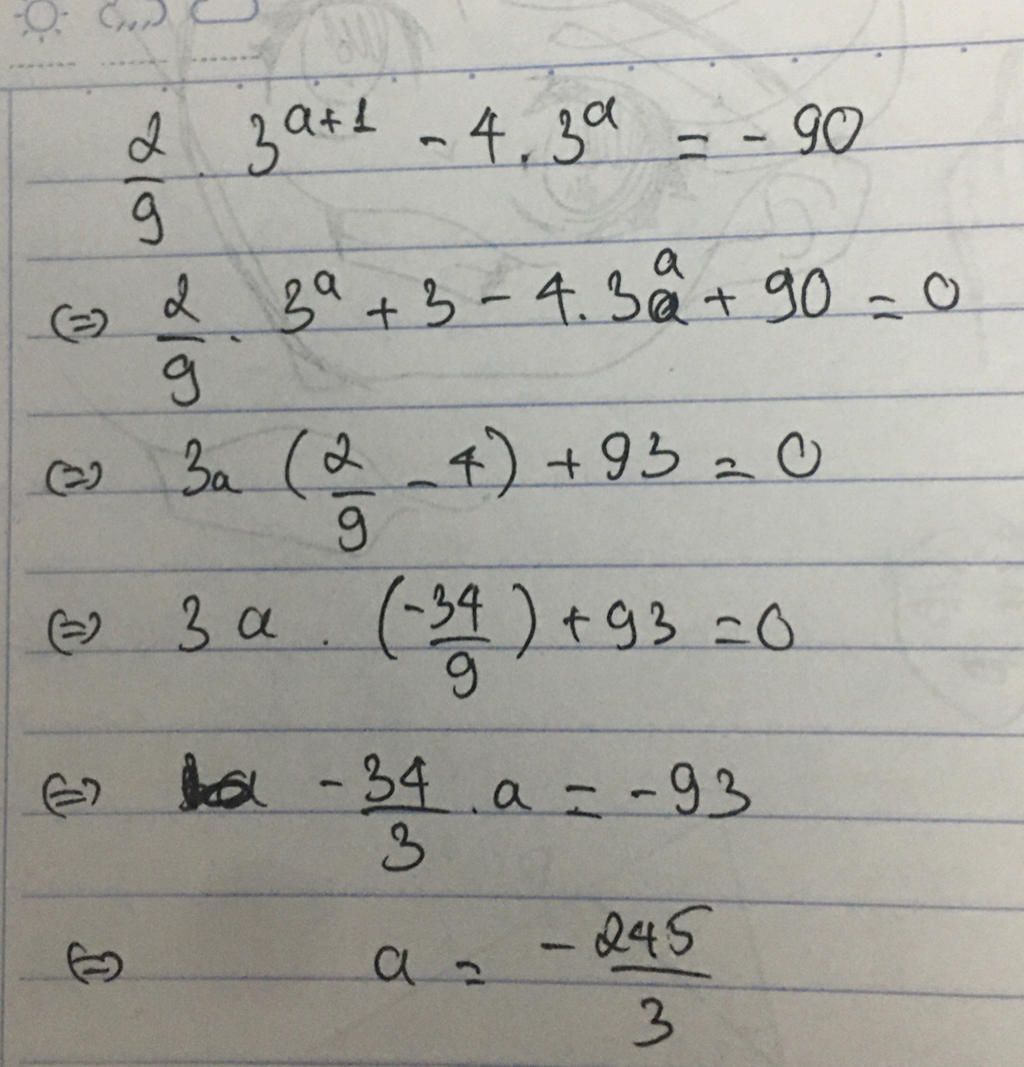 2/9 . 3^(a+1) - 4 . 3^a = - 90
(=) 2/9 . 3^a + 3 - 4 . 3^a + 90 = 0
(=) 3a (2/9 - 4) + 93 = 0
(=) 3a . (-34/9) + 93 = 0
(=) -34/3 . a = - 93
(=) a = -245/3